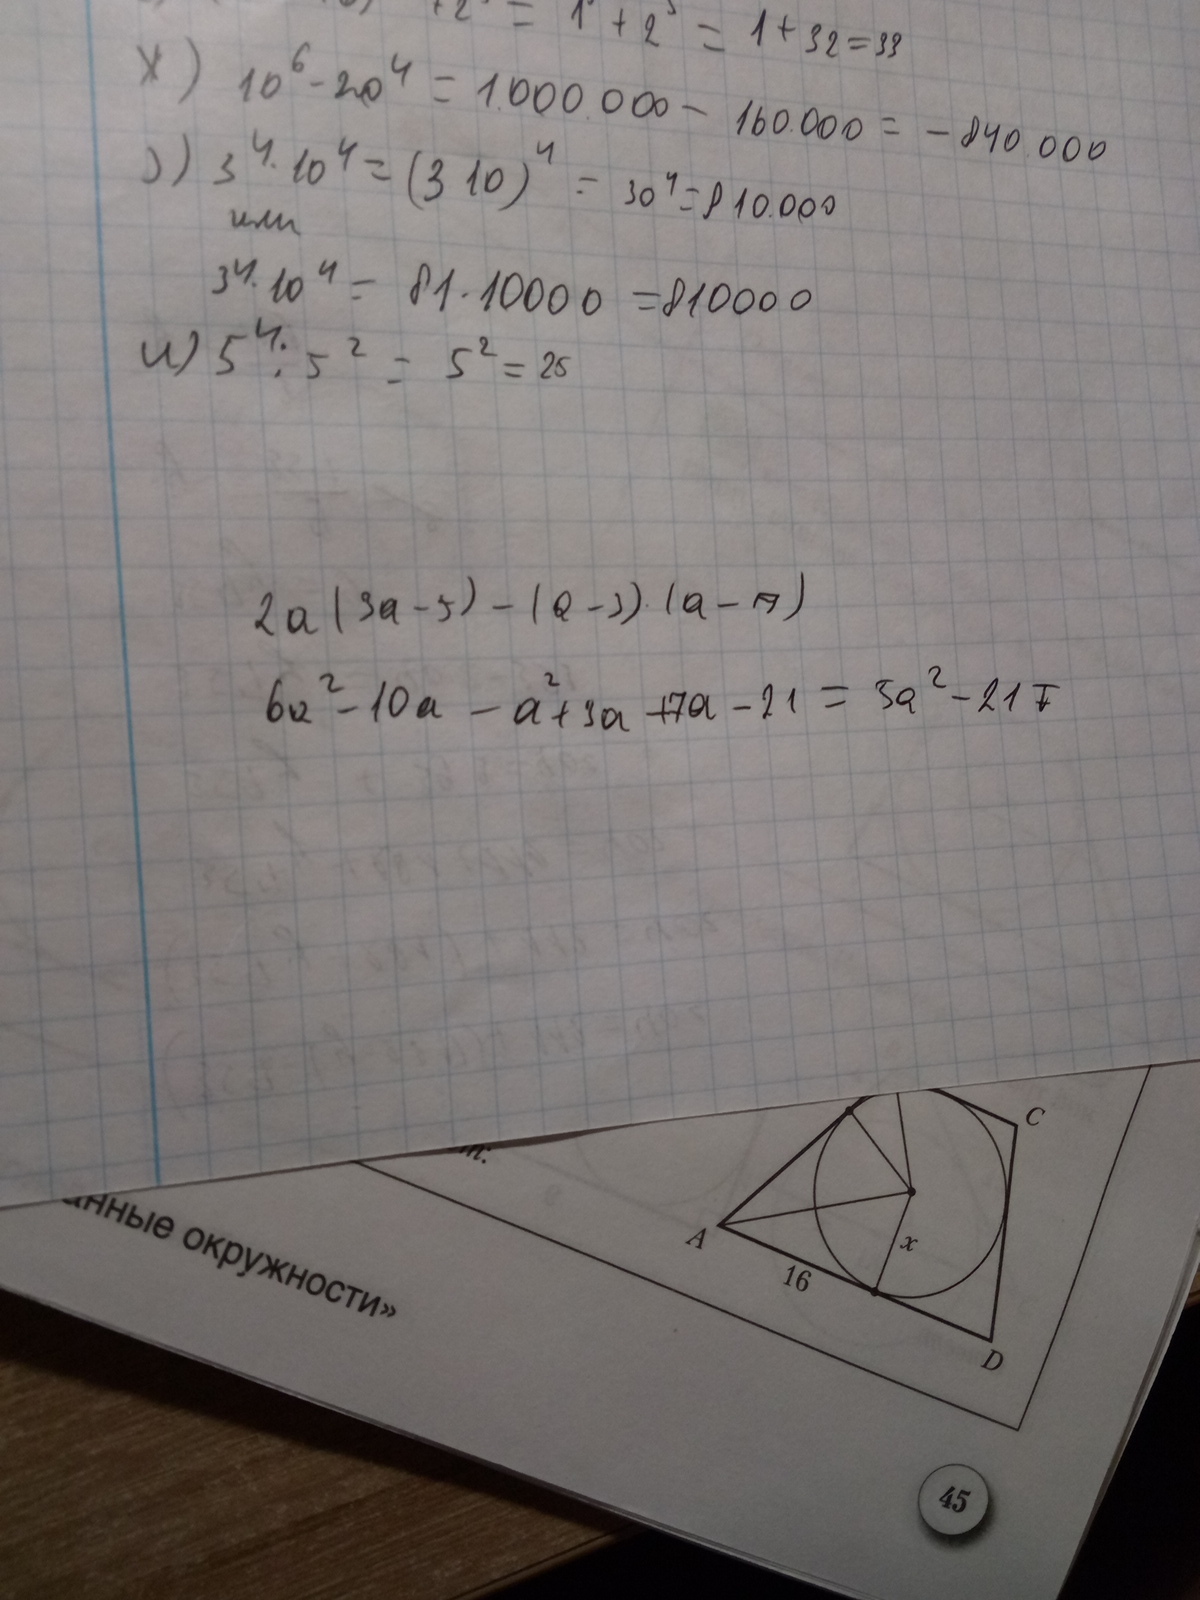 +2⁵ = 1⁵ + 2⁵ = 1 + 32 = 33
ж) 10⁶ - 20⁴ = 1.000.000 - 160.000 = - 840.000
з) 3⁴ · 10⁴ = (3 10)⁴ = 30⁴ = 810.000
или
3⁴ · 10⁴ = 81 · 10000 = 810000
и) 5⁴ : 5² = 5² = 25
2a (3a - 5) - (a - 3) · (a - 7)
6a² - 10a - a² + 3a + 7a - 21 = 5a² - 21
C
A
x
16
D
окружности»
45